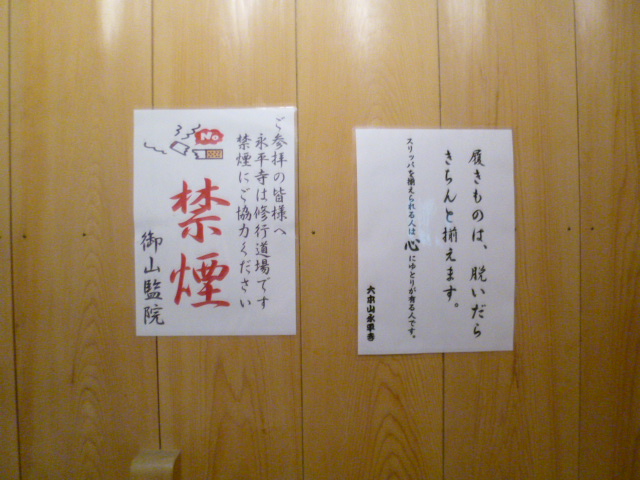 ご参拝の皆様へ
永平寺は修行道場です
禁煙にご協力ください
No
禁煙
御山監院
履きものは、脱いだら
きちんと揃えます。
スリッパを揃えられる人は心にゆとりが有る人です。
大本山永平寺